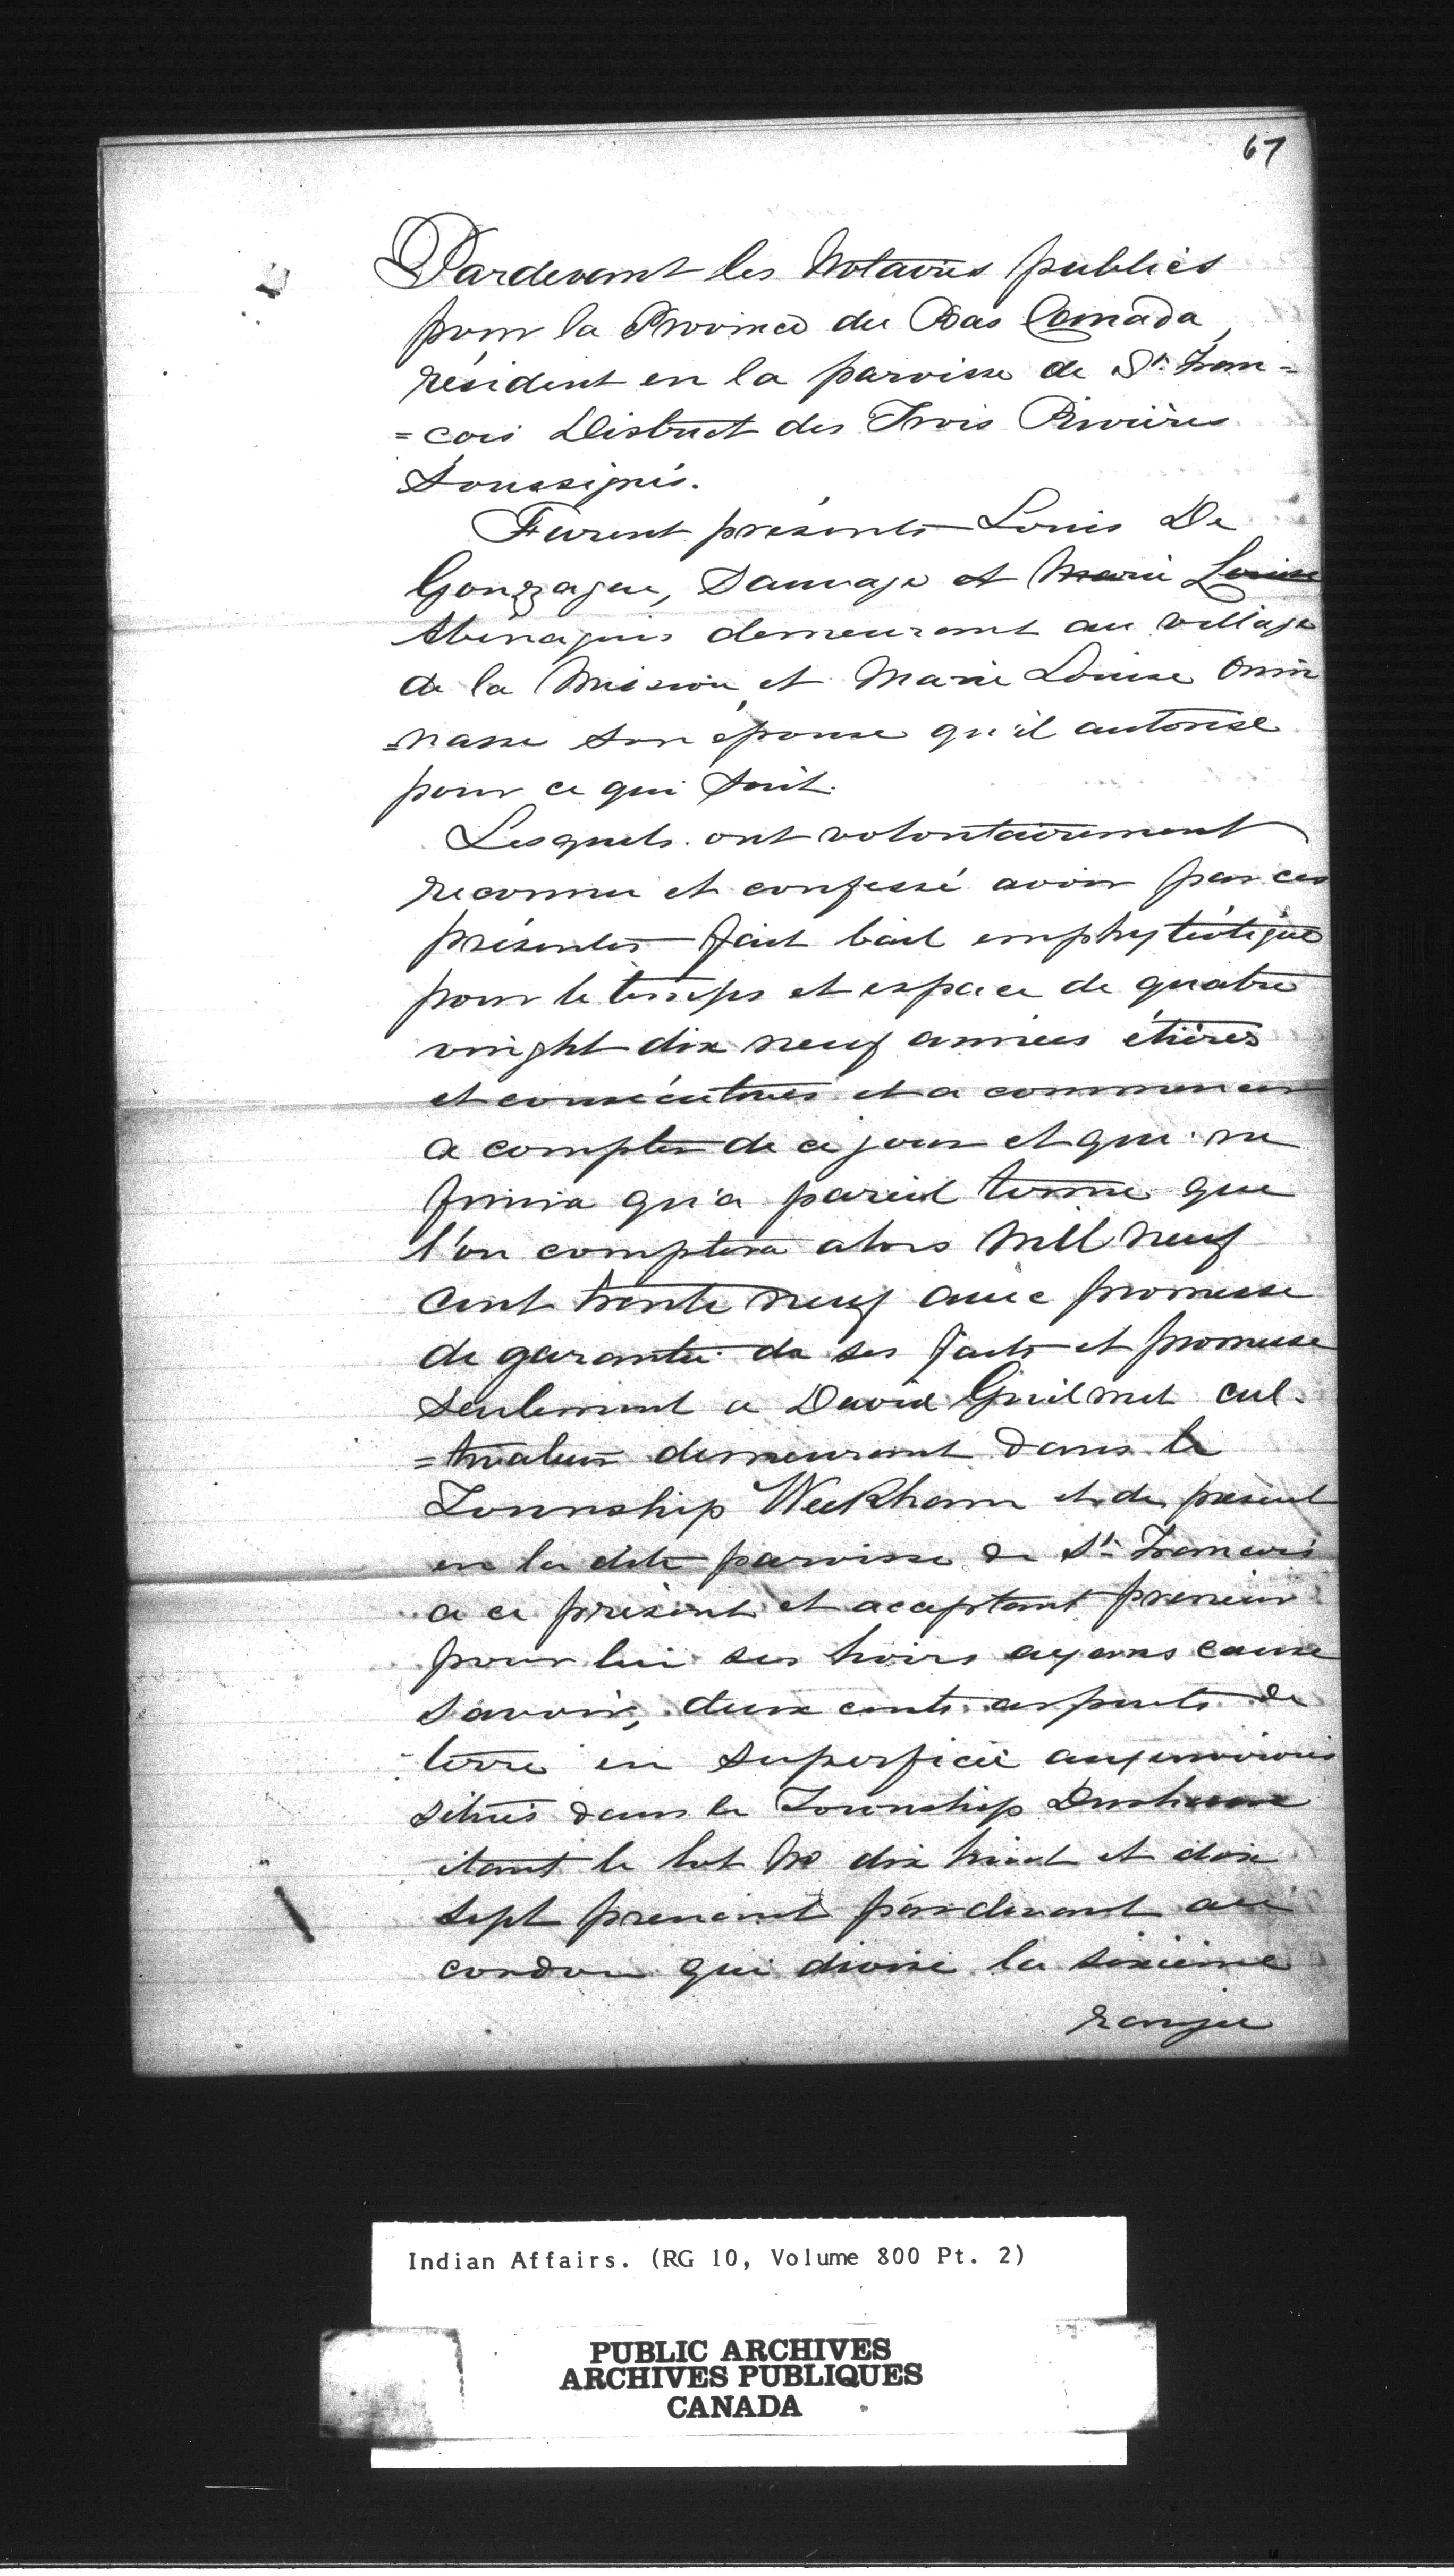 67
Pardevant les Notaires publics
pour la Province du Bas Canada,
résident en la paroisse de St. Fran=
=cois District des Trois Rivières
Soussignés.
Furent présents Louis De
Gonzague, Sauvage et Marie Louise
Abénaquis demeurant au village
de la Mission, et Marie Louise Om
=nasse son épouse qu'il autorise
pour ce qui suit.
Lesquels ont volontairement
reconnu et confessé avoir par ces
présentes fait bail emphytéotique
pour le temps et espace de quatre
vinght dix neuf années etières
et consécutives et a commencer
a compter de ce jour et qui ne
finira qu'a pareil terme que
l'on comptera alors Mil neuf
cent trente neuf avec promesse
de garantie de ses faits et promesse
Seulement a David Guilmet cul-
=tivateur demeurant dans le
Township Weekham et de présent
en la dite paroisse de St. Francois
a ce présent et acceptant preneur
pour lui ses hoirs ayans cause
Savoir, deux cents arpents de
terre en superficie auxenvirons
situés dans le Township Durham
étant le lot No dix huit et dix
sept prenant pardevant au
cordon qui divise la sixieme
rangée
Indian Affairs. (RG 10, Volume 800 Pt. 2)
PUBLIC ARCHIVES
ARCHIVES PUBLIQUES
CANADA